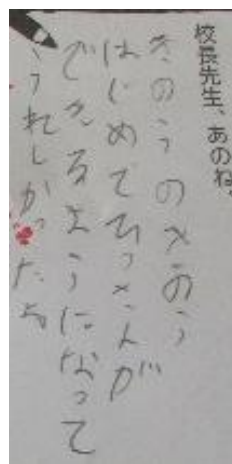 校長先生、あのね、
きのうの
はじめてひっさんが
できるようになって
うれしかった